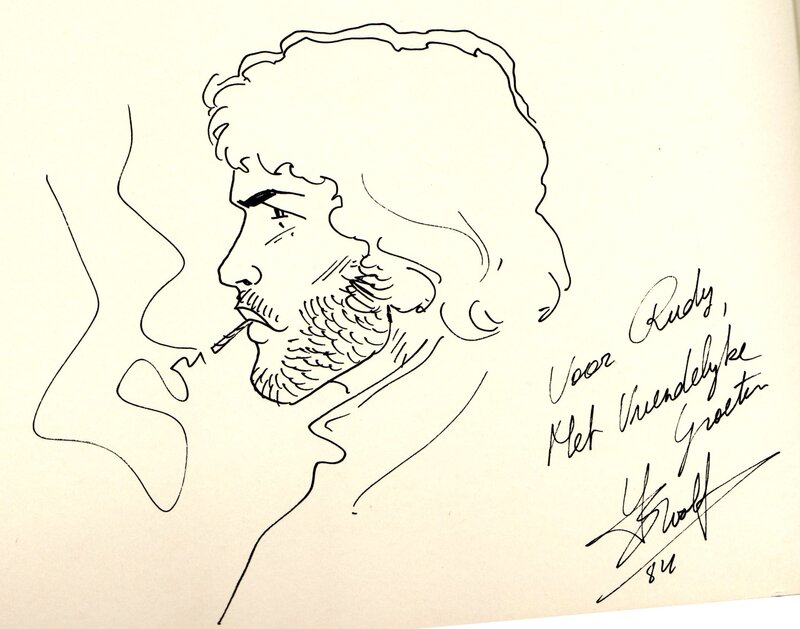 Voor Rudy,
Met Vriendelyke
Groeten
84